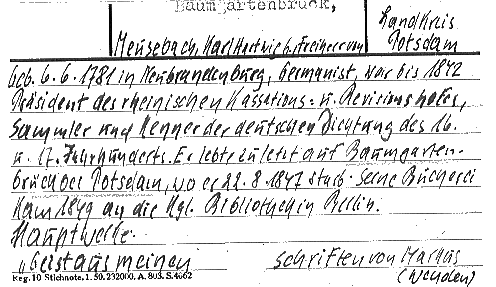 Baumgartenbrück,
Landkreis
Potsdam
Meusebach, Karl Hartwig b. Freiherr von
geb. 6.6.1781 in Neubrandenburg, Germanist, war bis 1842
Präsident des rheinischen Kassations- u. Revisionshofes,
Sammler und Kenner der deutschen Dichtung des 16.
u. 17. Jahrhunderts. Er lebte zuletzt auf Baumgarten-
brück bei Potsdam, wo er 22.8.1847 starb. Seine Bücherei
kam 1849 an die Kgl. Bibliothek in Berlin.
Hauptwelke.
"Geist aus meinen Schriften von Markus
(Wenden)
Reg. 10 Stichnote. 1. 59. 232000. A. 803. S. 4662